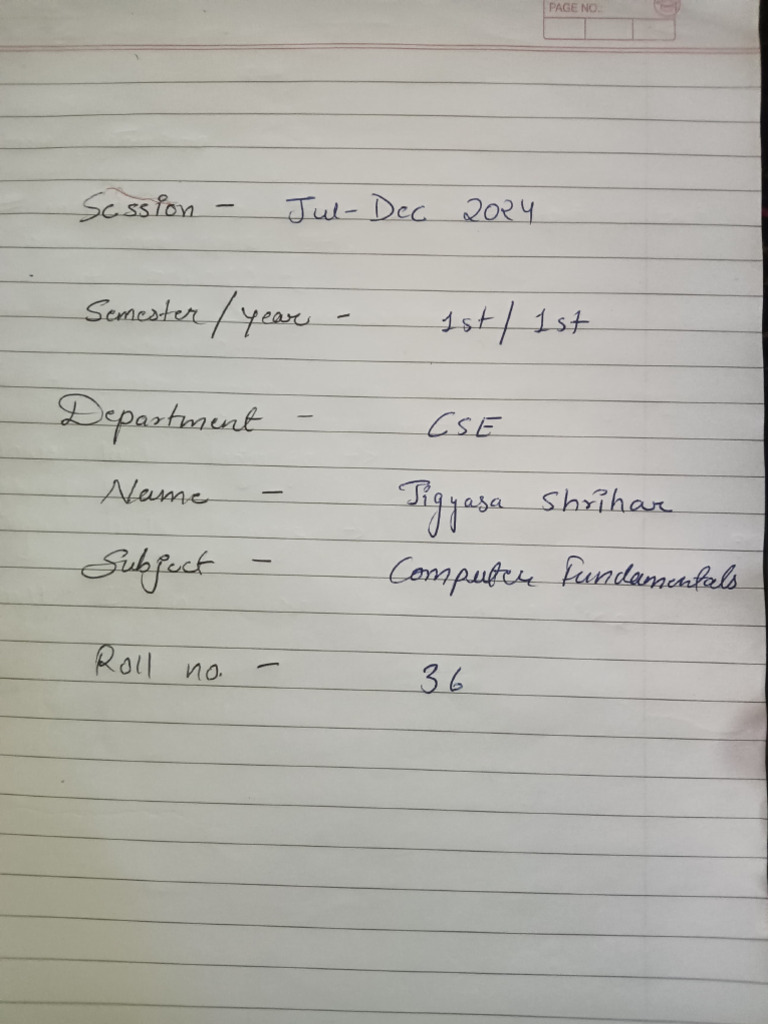 PAGE NO.
Session - Jul-Dec 2024
Semester/year - 1st/1st
Department - CSE
Name - Jigyasa Shrihar
Subject - Computer Fundamentals
Roll no. - 36